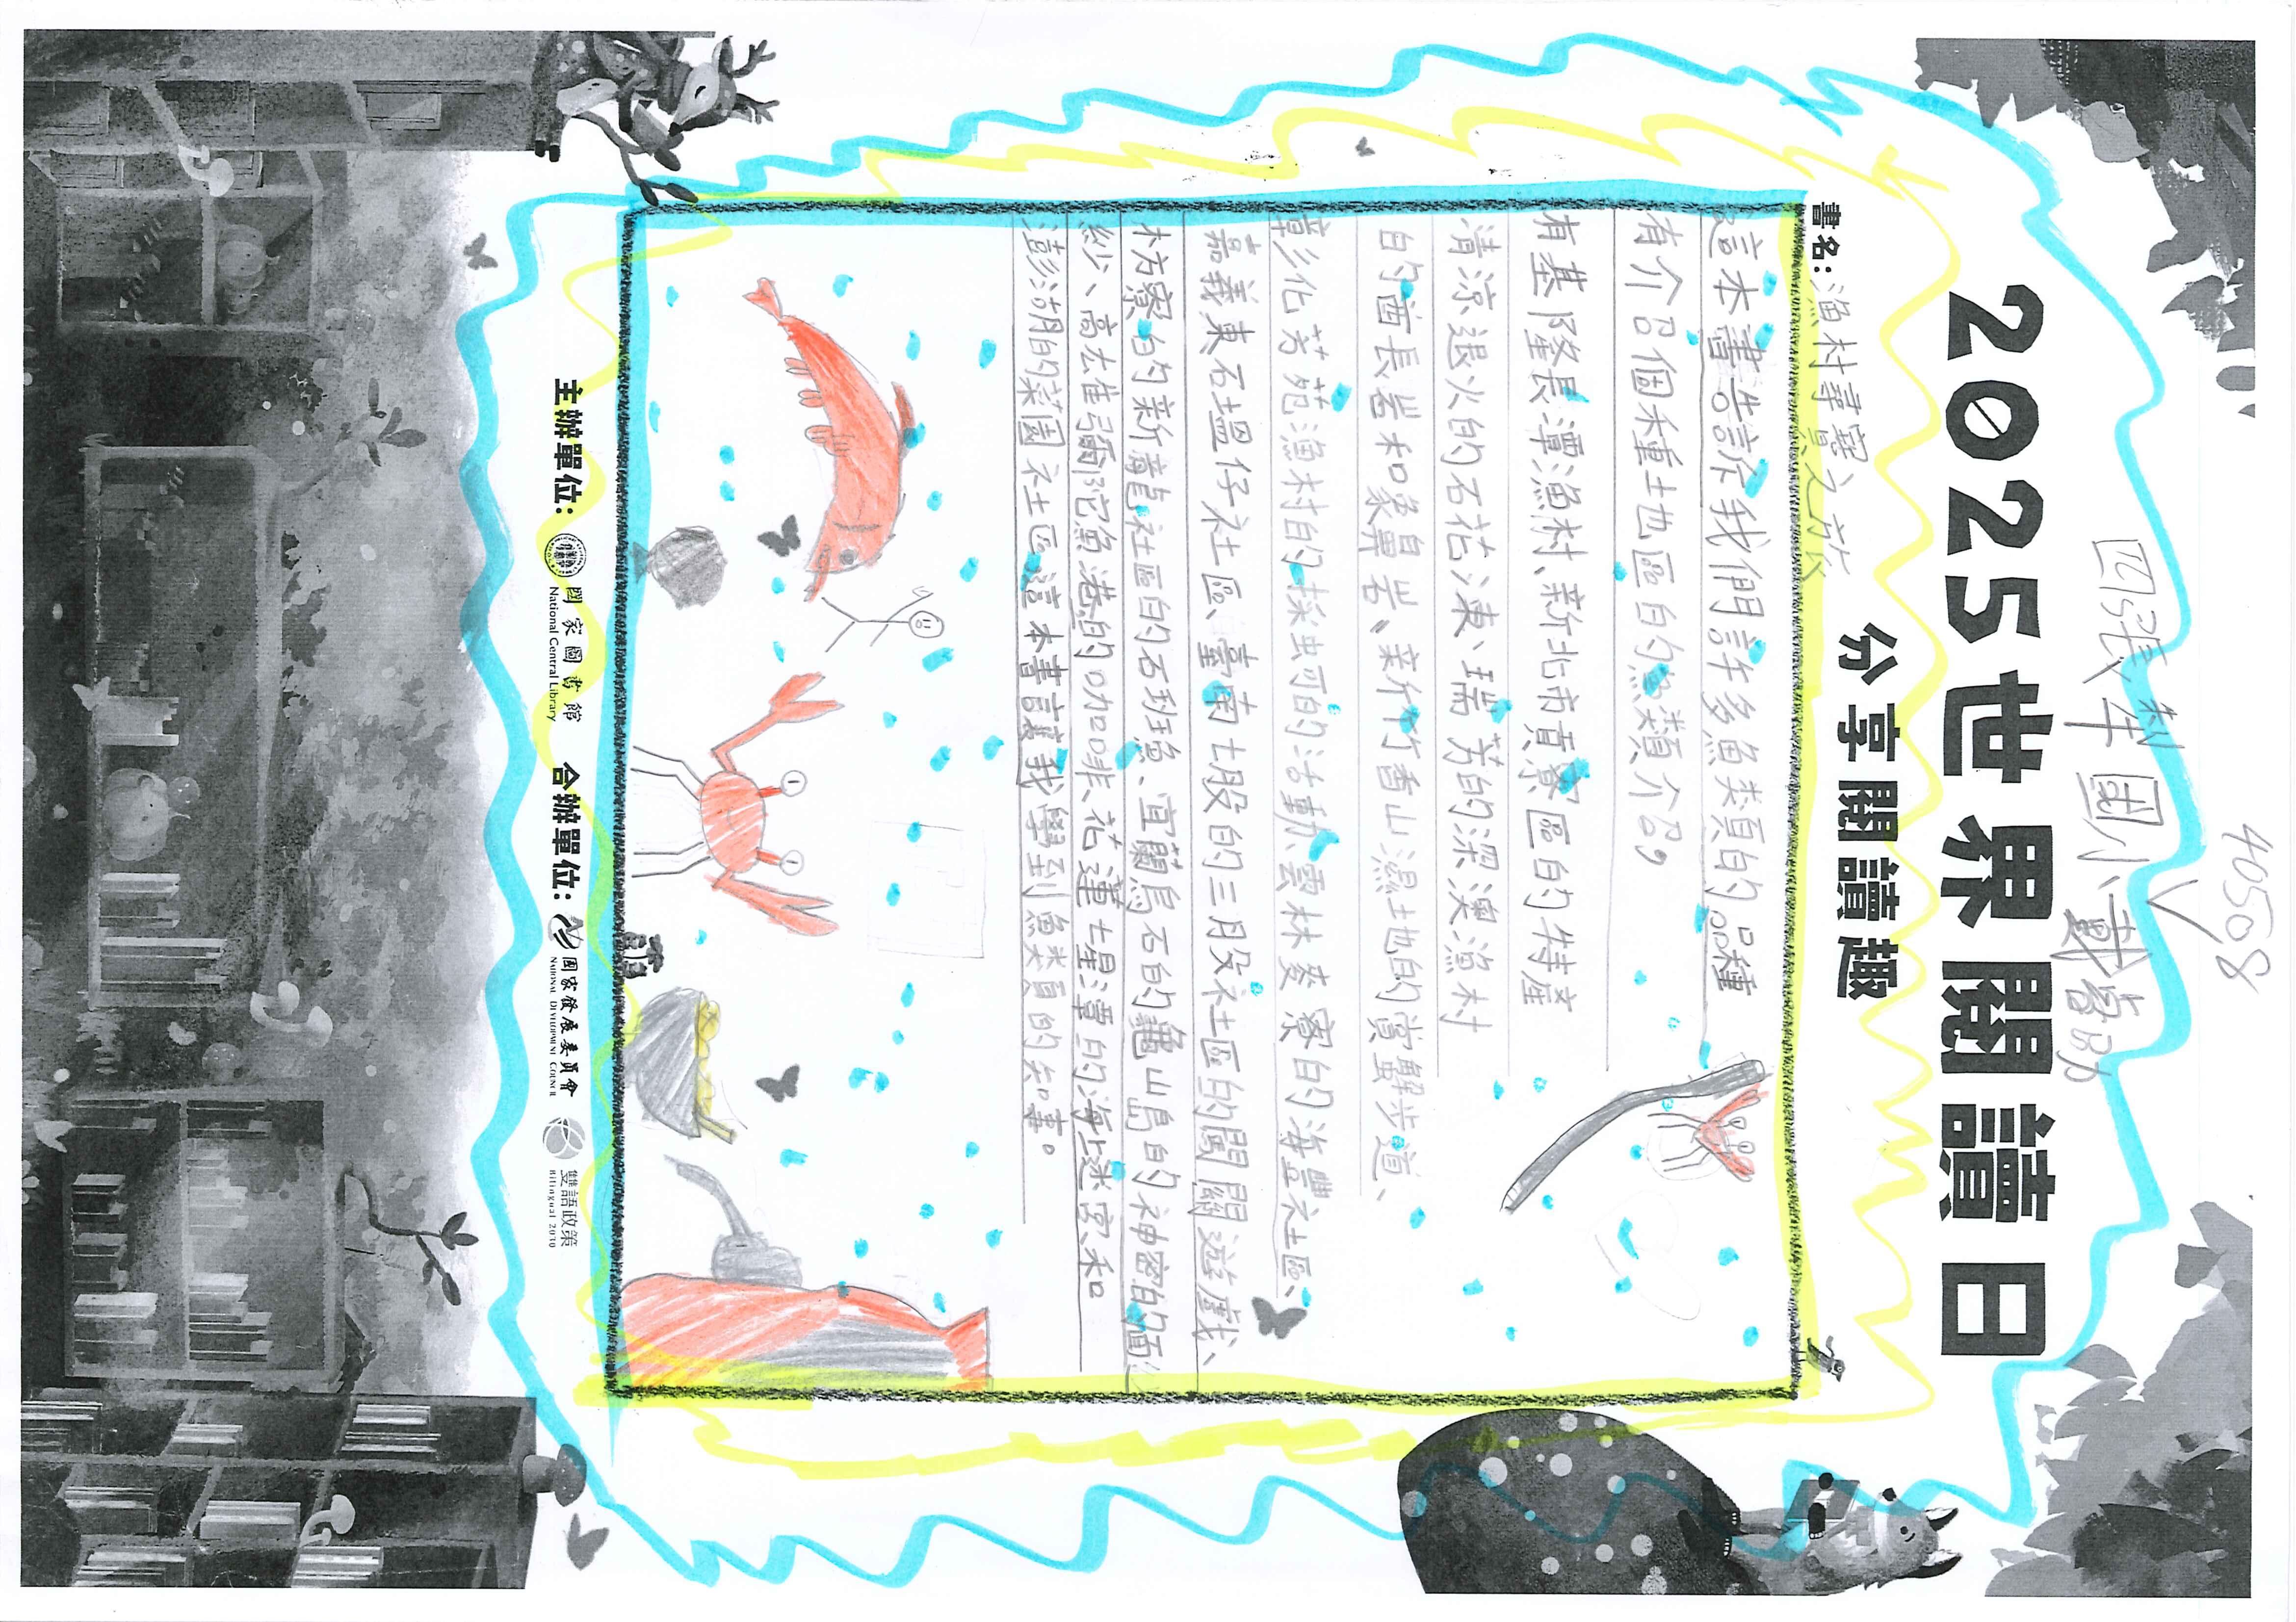 40508
國小
2025世界閱讀日
分享閱讀趣
書名:漁村尋寶之旅
這本書告訴我們許多魚類的品種
有介召個種土地區的魚類介召,
有基隆長潭漁村、新北市貢寮區的特産
清涼退火的石花凍、瑞芳的深澳漁村
的酋長岩和象鼻岩、新竹香山濕土地的賞蟹步道、
彰化芳苑漁村的採蚵的活動、雲林麥寮的海豐社區、
嘉義東石塭仔社區、臺南七股的三月殳社區的闖關遊戲、
枋寮的新龍社區的石班魚、宜蘭烏石的龜山島的神密的面
紗、高雄彌陀魚港的咖啡、花蓮七星潭的海上迷宮、和
澎湖的菜園社區、這本書讓我學到魚類的知事。
主辦單位:
國家圖書館
National Central Library
合辦單位:
國家發展委員會
NATIONAL DEVELOPMENT COUNCIL
雙語政策
Bilingual 2030